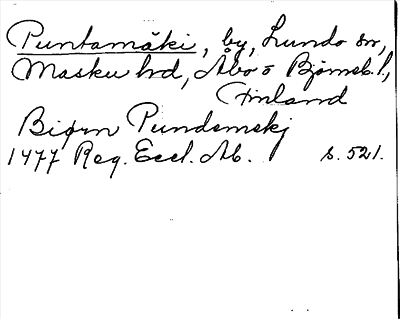 Puntamäki, by, Lundo sn,
Masku hd, Åbo o Björneb. l,
Finland
Biørn Pundemskj
1477 Reg. Eccl. Ab. s. 521.